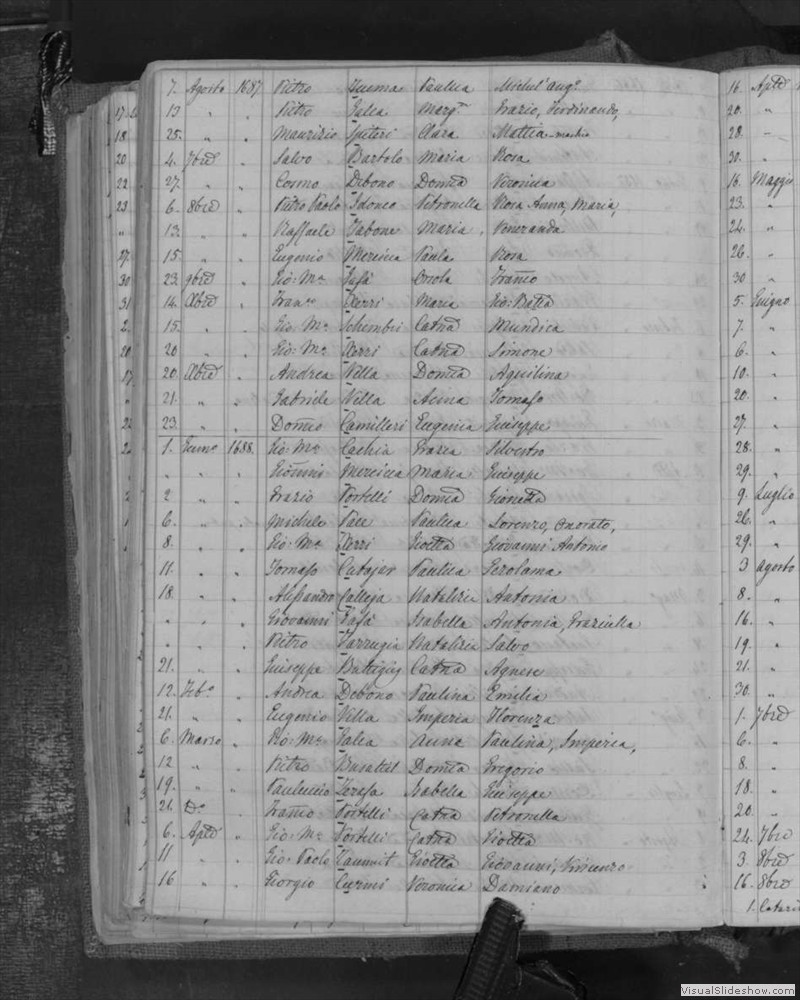 7. Agosto 1687 Pietro Paulica Michel' Ang.º
13 " " Pietro Galea Marg.ta Grazio, Ferdinando,
25. " " Maurizio Spiteri Clara Mattia - maschio
4. 7bre " Salvo Bartolo Maria Rosa
27. " " Cosmo Debono Domca Veronica
6. 8bre " Pietro Paolo Petronella Rosa Anna, Maria,
13. " " Raffaele Maria Veneranda
15. " " Eugenio Mercieca Paula Rosa
23. 9bre " Gio: Ma Orsola
14. Xbre " Fran.co Xerri Maria Gio: Batta
15. " " Gio: Ma Schembri Catna Mundica
20 " " Gio: Ma Xerri Catna Simone
20. Xbre " Andrea Villa Domca Aquilina
21. " " Gabriele Villa Anna Tomaso
23. " " Domco Camilleri Eugenia Giuseppe
1. Genno 1688. Gio: Ma Cachia Grazia Silvestro
" " " Gionni Mercieca Maria Giuseppe
2 " " Grazio Portelli Domca Gionetta
6. " " Michele Pace Paulica Lorenzo, Onorato,
8. " " Gio: Ma Xerri Gioetta Giovanni Antonio
11. " " Tomaso Cutajar Paulica Gerolama
18. " " Alessandro Calleja Natalizia Antonia
" " " Giovanni Isabella Antonia, Graziulla
" " " Pietro Farrugia Natalizia Salvo
21. " " Giuseppe Buttigieg Catna Agnese
12. Feb.º " Andrea Debono Paulina Emilia
21. " " Eugenio Villa Imperia Florenza
6. Marzo " Gio: Ma Galea Anna Paulina, Imperia,
12 " " Pietro Busuttil Domca Gregorio
19. " " Pauluccio Isabella Giuseppe
21. Do Franco Portelli Catna Petronella
6. Aple " Gio: Ma Portelli Catna Gioetta
11 " " Gio: Paolo Xammit Gioetta Giovanni, Vincenzo
16 " " Giorgio Curmi Veronica Damiano
16. Aple
20. "
28. -
30. "
16. Maggio
23. "
24. "
26. "
30 "
5. Giugno
7. "
6. "
10. "
20. "
27. "
28. "
29. "
9. Luglio
26. "
29. "
3 Agosto
8. "
16. "
19. "
21. "
30. "
1. 7bre
6. "
8. "
18. "
20. "
24. 7bre
3. 8bre
16. 8bre
VisualSlideshow.com